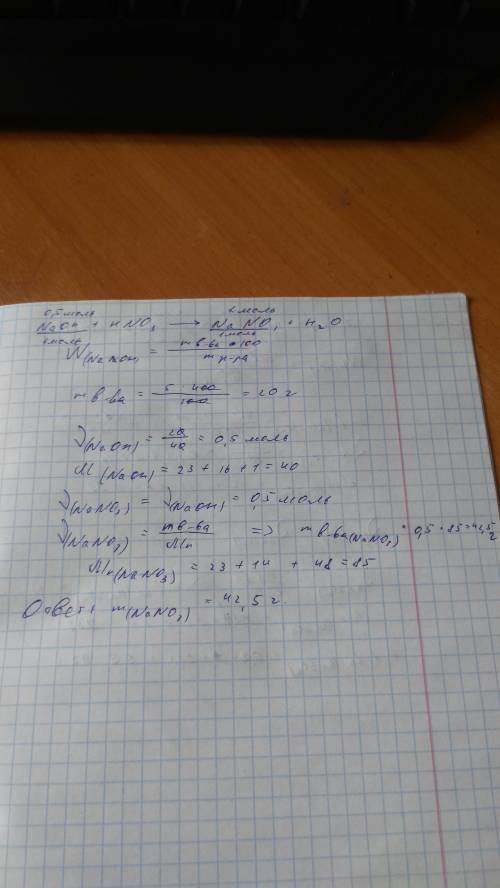 0,5 моль x моль
NaOH + HNO₃ → NaNO₃ + H₂O
1 моль 1 моль
W(NaOH) = m в-ва • 100 / m р-ра
m в-ва = 5 · 400 / 100 = 20 г
ν(NaOH) = 20 / 40 = 0,5 моль
M(NaOH) = 23 + 16 + 1 = 40
ν(NaNO₃) = ν(NaOH) = 0,5 моль
ν(NaNO₃) = m в-ва / Mr => m в-ва(NaNO₃) = 0,5 · 85 = 42,5 г
Mr(NaNO₃) = 23 + 14 + 48 = 85
Ответ: m(NaNO₃) = 42,5 г.